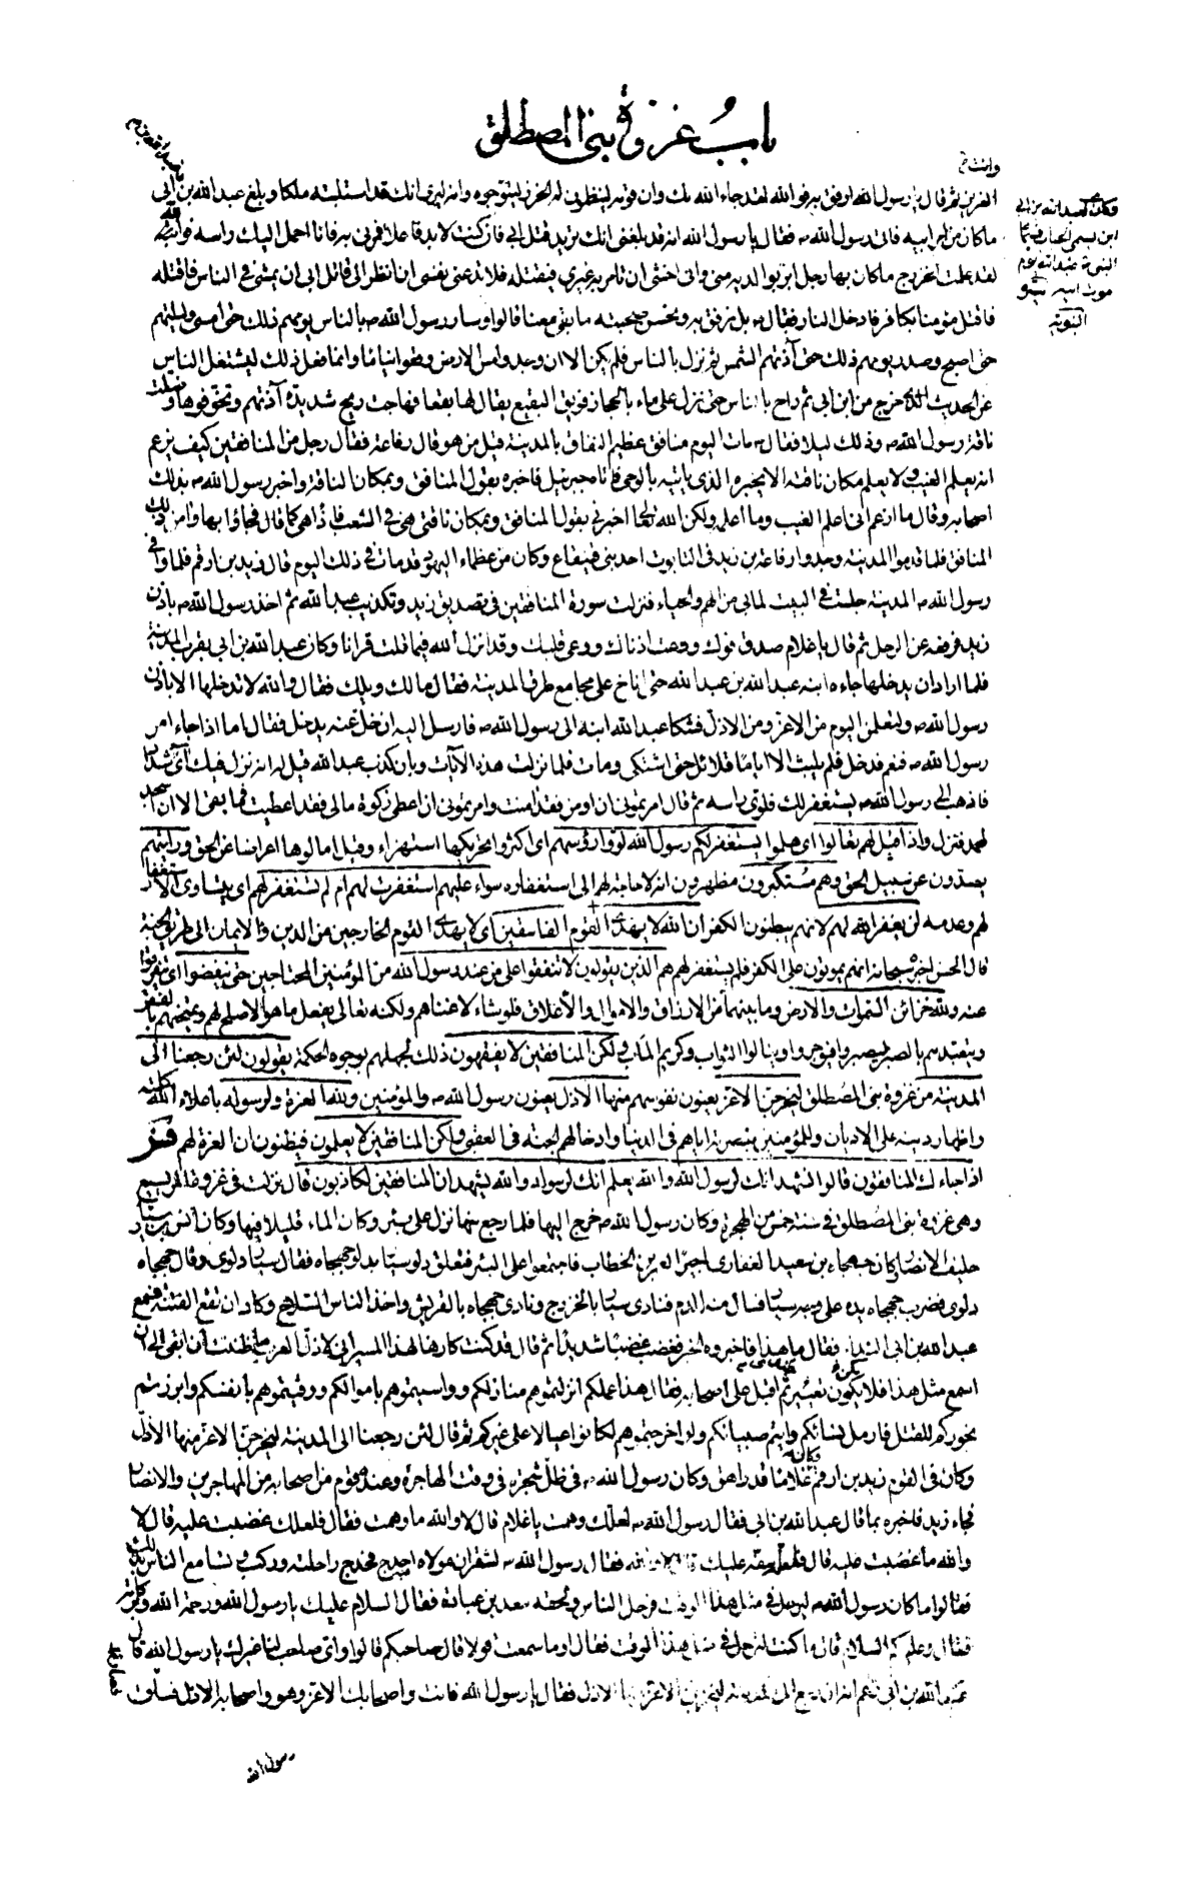 باب غزوة بنى المصطلق
وانت
العزيز ثم قال يا رسول الله ارفق به فوالله لقد جاء الله بك وان قومه لينظمون له الخرز ليتوجوه وانه ليرى انك قد استلبته ملكا و بلغ عبد الله بن ابى
ما كان من امر ابيه فاتى رسول الله ص فقال يا رسول الله انه قد بلغنى انك تريد قتل ابى فان كنت لا بد فاعلا فمرنى به فانا احمل اليك راسه فوالله
لقد علمت الخزرج ما كان بها رجل ابر بوالديه منى وانى اخشى ان تامر به غيرى فيقتله فلا تدعنى نفسى ان انظر الى قاتل ابى ان يمشى فى الناس فاقتله
فاقتل مؤمنا بكافر فادخل النار فقال ص بل نرفق به ونحسن صحبته ما بقى معنا قالوا وسار رسول الله ص بالناس يومهم ذلك حتى امسى وليلتهم
حتى اصبح وصدر يومهم ذلك حتى آذتهم الشمس ثم نزل بالناس فلم يكن الا ان وجدوا مس الارض وقعوا نياما وانما فعل ذلك ليشتغل الناس
عن الحديث الذى خرج من ابن ابى ثم راح بالناس حتى نزل على ماء بالحجاز فويق البقيع يقال لها بقعا فهاجت ريح شديدة آذتهم وتخوفوها وضلت
ناقة رسول الله ص وذلك ليلا فقال ص مات اليوم منافق عظيم النفاق بالمدينة قيل من هو قال رفاعة فقال رجل من المنافقين كيف يزعم
انه يعلم الغيب ولا يعلم مكان ناقته الا يخبره الذى ياتيه بالوحى فاتاه جبرئيل فاخبره بقول المنافق وبمكان الناقة واخبر رسول الله ص بذلك
اصحابه وقال ما ازعم انى اعلم الغيب وما اعلمه ولكن الله تعالى اخبرنى بقول المنافق وبمكان ناقتى هى فى الشعب فاذا هى كما قال فجاؤا بها وامن ذلك
المنافق فلما قدموا المدينة وجدوا رفاعة بن زيد فى التابوت احد بنى قينقاع وكان من عظماء اليهود قد مات فى ذلك اليوم قال زيد بن ارقم فلما وافى
رسول الله ص المدينة جلست فى البيت لما بى من الهم والحياء فنزلت سورة المنافقين فى تصديق زيد وتكذيب عبد الله ثم اخذ رسول الله ص باذن
زيد فرفعه عن الرحل ثم قال يا غلام صدق فوك ووعت اذناك ووعى قلبك وقد انزل الله فيما قلت قرانا وكان عبد الله بن ابى بقرب المدينة
فلما اراد ان يدخلها جاءه ابنه عبد الله بن عبد الله حتى اناخ على مجامع طرق المدينة فقال مالك ويلك فقال والله لا تدخلها الا باذن
رسول الله ص ولتعلمن اليوم من الاعز ومن الاذل فشكا عبد الله ابنه الى رسول الله ص فارسل اليه ان خل عنه يدخل فقال اما اذا جاء امر
رسول الله ص فنعم فدخل فلم يلبث الا اياما قلائل حتى اشتكى ومات فلما نزلت هذه الآيات وبان كذب عبد الله قيل له انه نزل فيك آى شداد
فاذهب الى رسول الله ص يستغفر لك فلوى راسه ثم قال امرتمونى ان اومن فقد امنت وامرتمونى ان اعطى زكوة مالى فقد اعطيت فما بقى الا ان اسجد
لمحمد فنزل واذا قيل لهم تعالوا اى هلموا يستغفر لكم رسول الله لووا رؤسهم اى اكثروا تحريكها استهزاء وقيل امالوها اعراضا عن الحق ورأيتهم
يصدون عن سبيل الحق وهم مستكبرون مظهرون انه لا حاجة لهم الى استغفاره سواء عليهم استغفرت لهم ام لم تستغفر لهم اى يتساوى الاستغفار
لهم وعدمه لن يغفر الله لهم لانهم يبطنون الكفر ان الله لا يهدى القوم الفاسقين اى لا يهدى القوم الخارجين من الدين والايمان الى طريق الجنة
قال الحسن اخبره سبحانه انهم يموتون على الكفر فلم يستغفر لهم هم الذين يقولون لا تنفقوا على من عند رسول الله من المؤمنين المحتاجين حتى ينفضوا اى يتفرقوا
عنه ولله خزائن السموات والارض وما بينهما من الارزاق والاموال والاعلاق فلو شاء لاغناهم ولكنه تعالى يفعل ما هو الاصلح لهم ويمتحنهم بالفقر
ويتعبدهم بالصبر ليصبروا فيوجروا وينالوا الثواب وكريم المآب ولكن المنافقين لا يفقهون ذلك لجهلهم بوجوه الحكمة يقولون لئن رجعنا الى
المدينة من غزوة بنى المصطلق ليخرجن الاعز يعنون نفوسهم منها الاذل يعنون رسول الله ص والمؤمنين ولله العزة ولرسوله باعلاء الله كلمته
واظهار دينه على الاديان وللمؤمنين بنصرته اياهم فى الدنيا وادخالهم الجنة فى العقبى ولكن المنافقين لا يعلمون فيظنون ان العزة لهم فس
اذا جاءك المنافقون قالوا نشهد انك لرسول الله والله يعلم انك لرسوله والله يشهد ان المنافقين لكاذبون قال نزلت فى غزوة المريسيع
وهى غزوة بنى المصطلق فى سنة خمس من الهجرة وكان رسول الله ص خرج اليها فلما رجع منها نزل على بئر وكان الماء قليلا فيها وكان انس بن سيار
حليف الانصار وكان جهجاه بن سعيد الغفارى اجيرا لعمر بن الخطاب فاجتمعوا على البئر فتعلق دلو سيار بدلو جهجاه فقال سيار دلوى وقال جهجاه
دلوى فضرب جهجاه يده على وجه سيار فسال منه الدم فنادى سيار بالخزرج ونادى جهجاه بالقريش واخذ الناس السلاح وكاد ان تقع الفتنة فسمع
عبد الله بن ابى النداء فقال ما هذا فاخبروه الخبر فغضب غضبا شديدا ثم قال قد كنت كارها لهذا المسير انى لاذل العرب ما ظننت ان ابقى الى ان
اسمع مثل هذا فلا يكون تغيير ثم اقبل على اصحابه فقال هذا عملكم انزلتموهم منازلكم وواسيتموهم باموالكم ووقيتموهم بانفسكم وابرزتم
نحوركم للقتل فارمل نسائكم وايتم صبيانكم ولو اخرجتموهم لكانوا عيالا على غيركم ثم قال لئن رجعنا الى المدينة ليخرجن الاعز منها الاذل
وكان فى القوم زيد بن ارقم وكان غلاما قد راهق وكان رسول الله ص فى ظل شجرة فى وقت الهاجرة وعنده قوم من اصحابه من المهاجرين والانصار
فجاء زيد فاخبره بما قال عبد الله بن ابى فقال رسول الله ص لعلك وهمت يا غلام قال لا والله ما وهمت فقال فلعلك غضبت عليه قال لا
والله ما غضبت عليه قال فلعله سفه عليك فقال لا والله فقال رسول الله ص لشقران مولاه احدج فحدج راحلته وركب وتسامع الناس بذلك
فقالوا ما كان رسول الله ص ليرحل فى مثل هذا الوقت فرحل الناس ولحقه سعد بن عبادة فقال السلام عليك يا رسول الله ورحمة الله وبركاته
فقال وعليك السلام فقال ما كنت لترحل فى مثل هذا الوقت فقال اوما سمعت قولا قال صاحبكم قالوا واى صاحب لنا غيرك يا رسول الله قال
عبد الله بن ابى زعم انه ان رجع الى المدينة ليخرجن الاعز منها الاذل فقال يا رسول الله فانت واصحابك الاعز وهو واصحابه الاذل فسار
رسول الله